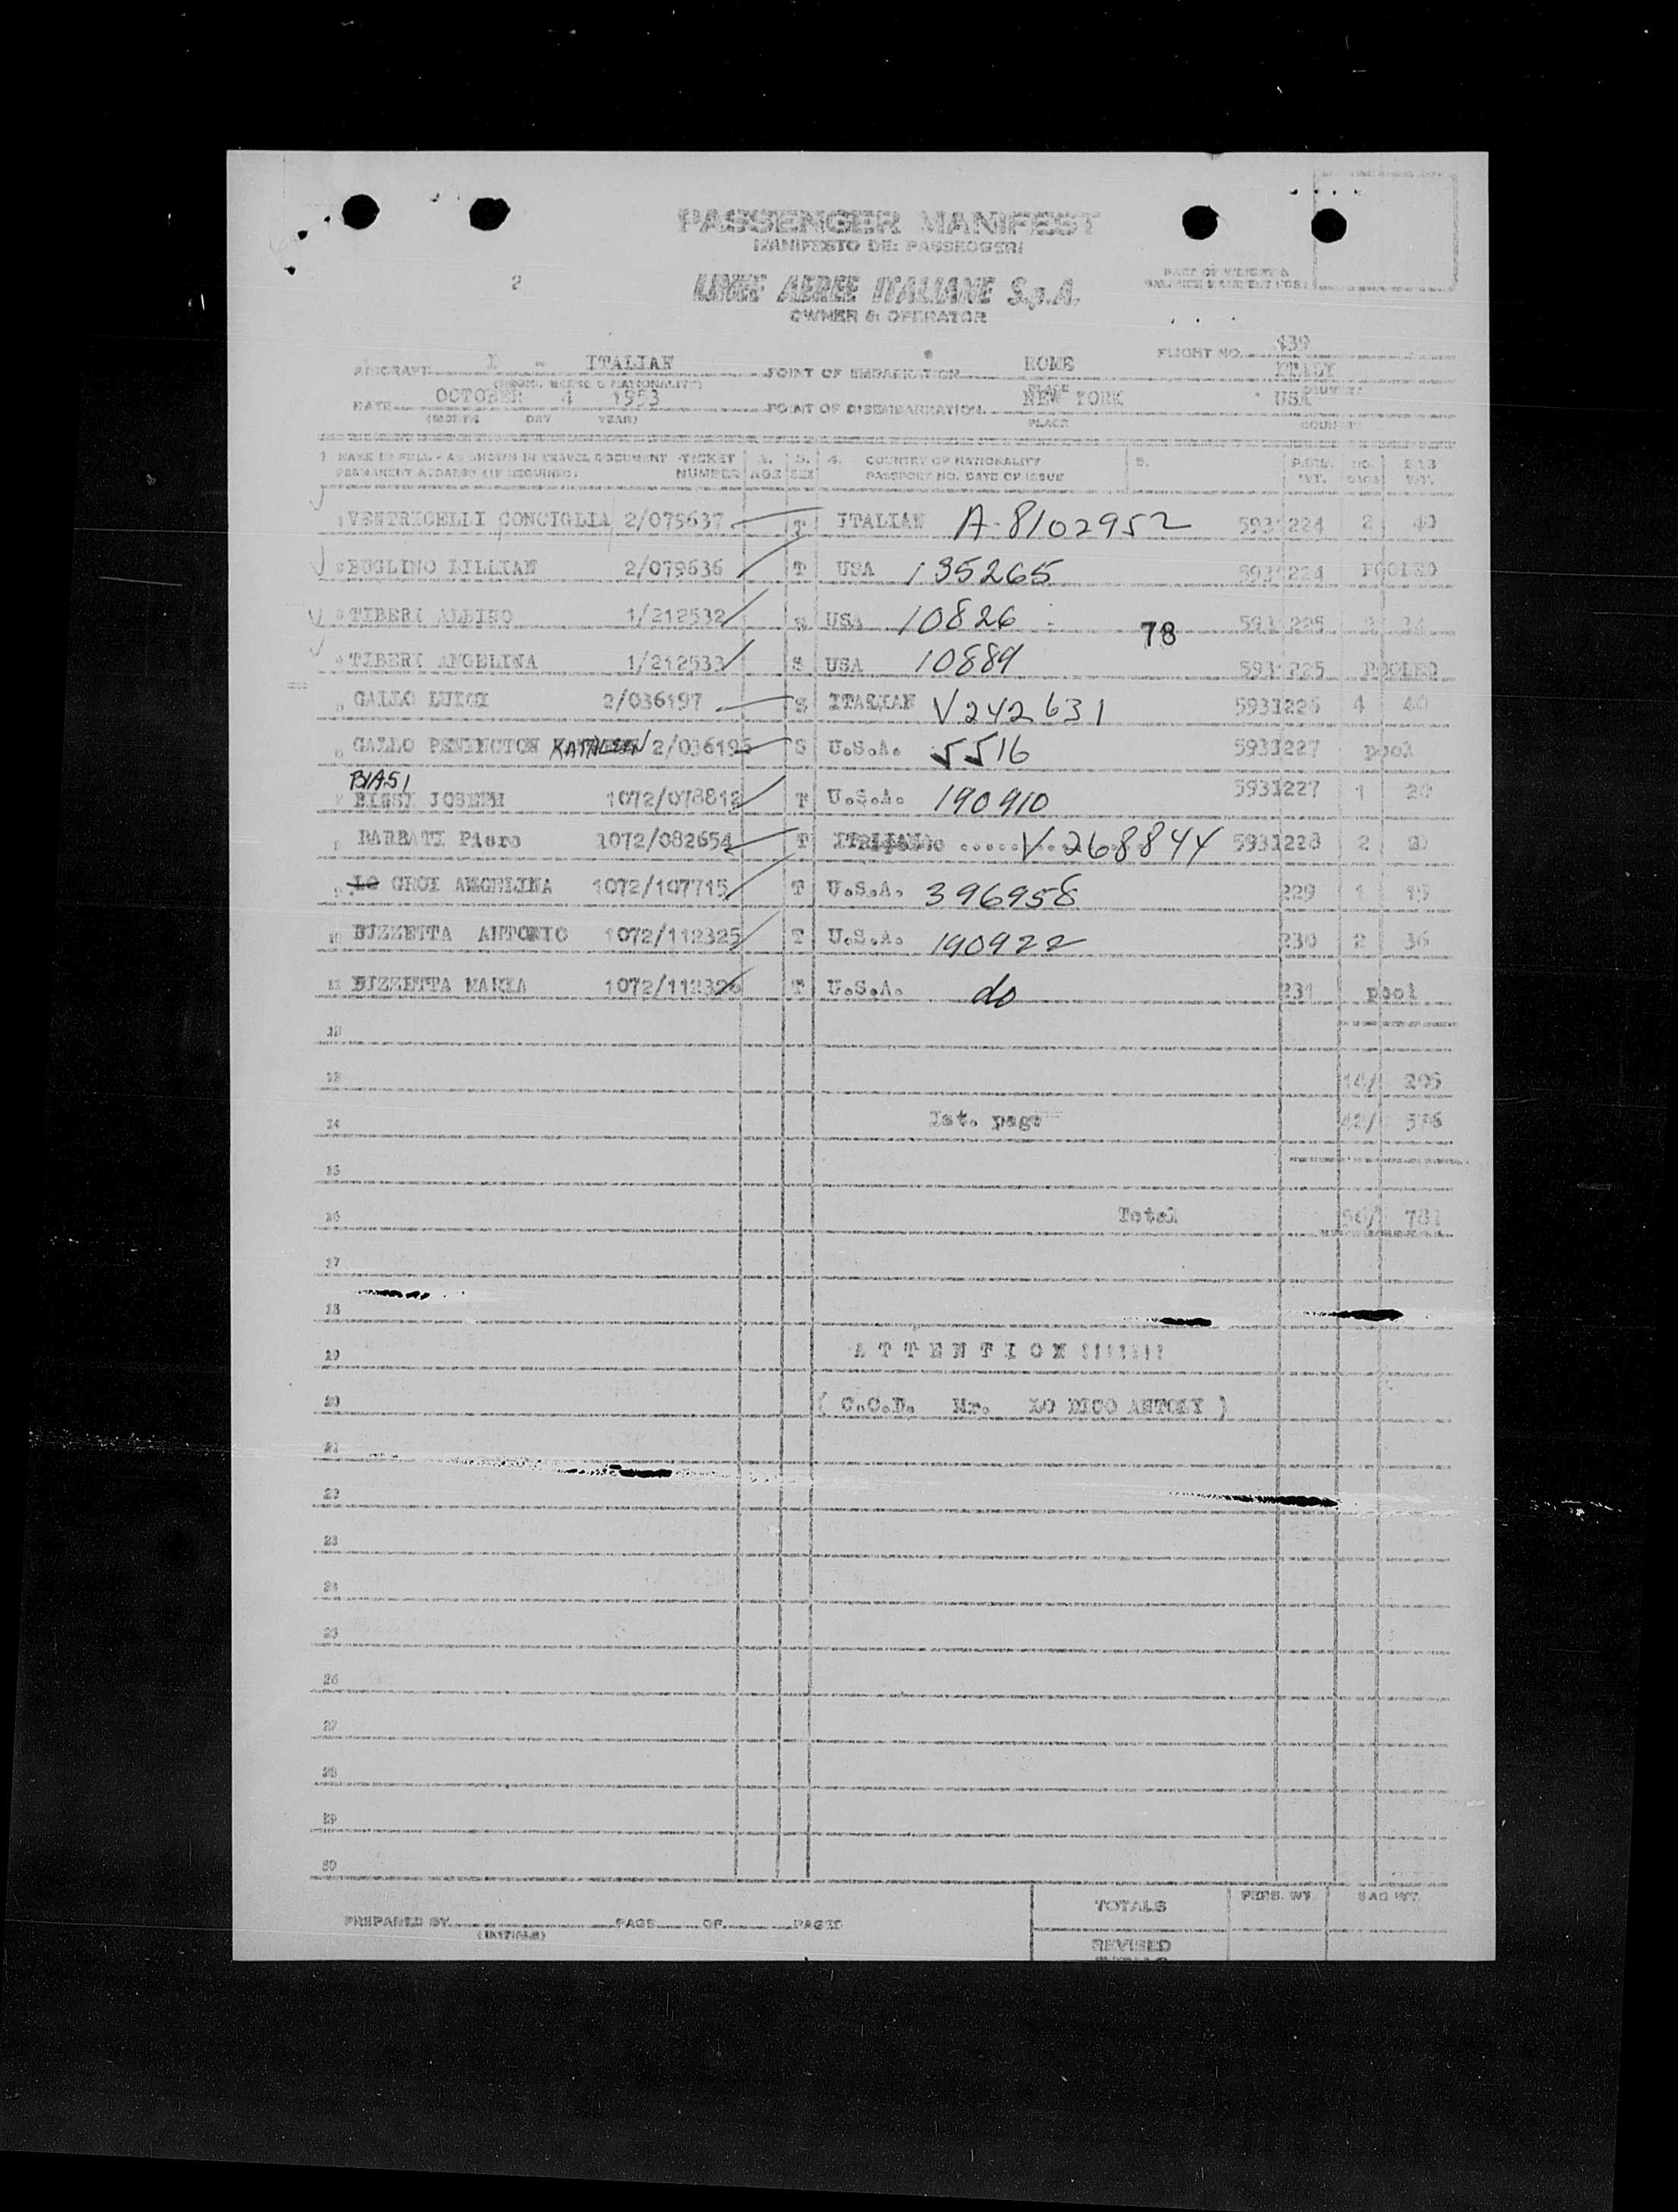 PASSENGER MANIFEST
MANIFESTO DEI PASSEGGERI
2
LINEE AEREE ITALIANE S.p.A.
OWNER & OPERATOR
AIRCRAFT I - ITALIAN POINT OF EMBARKATION ROME FLIGHT NO. 439 ITALY
PLACE COUNTRY
DATE OCTOBER 4 1953 POINT OF DISEMBARKATION NEW YORK USA
(MONTH DAY YEAR) PLACE COUNTRY
1. NAME IN FULL - AS SHOWN IN TRAVEL DOCUMENT TICKET 2. 3. 4. COUNTRY OF NATIONALITY 5. PERS. NO. BAG
PERMANENT ADDRESS (IF REQUIRED) NUMBER AGE SEX PASSPORT NO. DATE OF ISSUE WT. BAGS WT.
1 VENTRICELLI CONCIGLIA 2/079637 T ITALIAN A-8102952 5931224 2 40
2 BUGLINO LILLIAN 2/079636 T USA 135265 5931224 POOLED
3 TIBERI ALBINO 1/212532 S USA 10826 78
4 TIBERI ANGELINA 1/212533 S USA 10889 5931225 POOLED
5 GALLO LUIGI 2/036197 S ITALIAN V242631 5931226 4 40
6 GALLO PENINGTON KATHLEEN 2/036196 S U.S.A. 5516 5931227 pool
BIASI
7 JOSEPH 1072/078812 T U.S.A. 190910 5931227 1 20
8 BARBATI Piero 1072/082654 T ITALIANA V.268844 5931228 2
9 LO GROI ANGELINA 1072/107715 T U.S.A. 396958 229 1 15
10 BIZZETTA ANTONIO 1072/112325 T U.S.A. 190922 230 2 36
11 BIZZETTA MARIA 1072/112326 T U.S.A. do 231 pool
12
13 14/ 205
14 Ist. page 42/ 576
15
16 Total 56/ 781
17
18
19 ATTENTION !!!!!!!
20 ( C.O.D. Mr. LO DICO ANTONY )
21
22
23
24
25
26
27
28
29
30
TOTALS PERS. WT. BAG WT.
PREPARED BY PAGE OF PAGES
(INITIALS)
REVISED